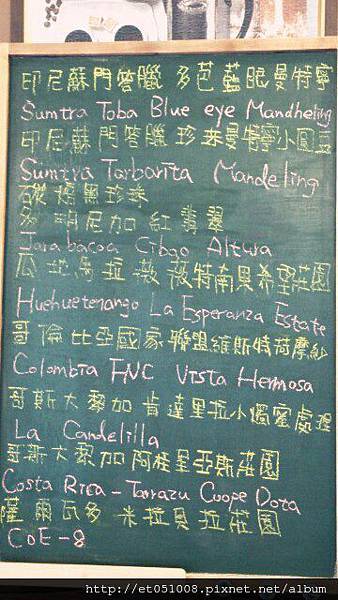 印尼蘇門答臘 多芭藍眼曼特寧
Sumtra Toba Blue eye Mandheling
印尼蘇門答臘珍珠曼特寧小圓豆
Sumtra Tarbarita Mandeling
碳燒黑珍珠
多明尼加紅翡翠
Jarabacoa Cibao Altura
瓜地馬拉薇薇特南果希望莊園
Huehuetenango La Esperanza Estate
哥倫比亞國家聯盟維斯特荷摩紗
Colombia FNC Vista Hermosa
哥斯大黎加肯達里拉小燭蜜處理
La Candelilla
哥斯大黎加阿桂里亞斯莊園
Costa Rica - Tarrazu Coope Dota
薩爾瓦多 米拉貝拉莊園
CoE-8
http://et051008.pixnet.net/album